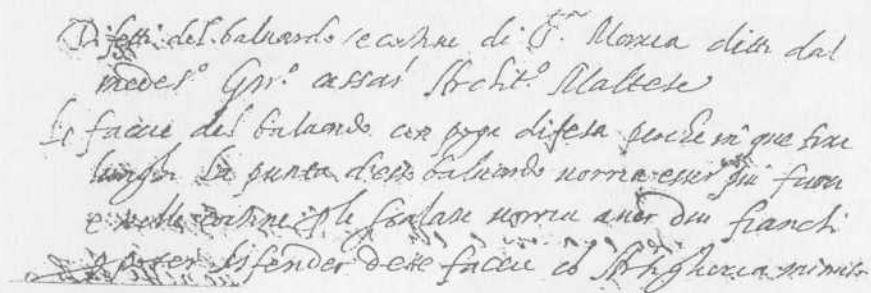 Difetti del baluardo e cortine di S. Monica ditti dal
medes.º Gir.º Cassar Archit.º Maltese
Le faccie del baluardo con poga difesa perche in que
lungh. La punta d'esso baluardo uorria esser piu fuori
e nelle cortine le uorria auer dui fianchi
poter difender dette faccie cõ Artigheria